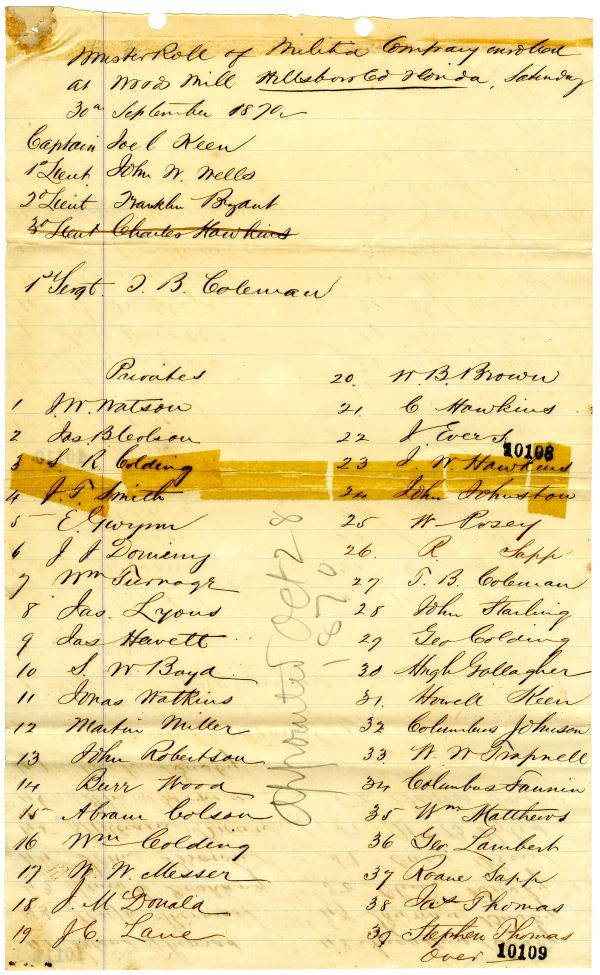 Muster Roll of Militia Company enrolled
at Wood Mill Hillsboro Co Florida, Saturday
30th September 1870
Captain Joel Keen
1st Lieut John W. Wells
2d Lieut Franklin Bryant
3d Lieut Charles Hawkins
1st Sergt. J. B. Coleman
Privates
1 J. W. Watson
2 Jas B Colson
3 S. R. Colding
4 J. T. Smith
5 E. Gwynn
6 J J Domeny
7 Wm Turnage
8 Jas. Lyons
9 Jas Hewett
10 S. W Boyd
11 Jonas Watkins
12 Martin Miller
13 John Robertson
14 Burr Wood
15 Abram Colson
16 Wm Colding
17 W. W. Messer
18 J. McDonald
19 J. C. Lane
20. W. B. Brown
21. C Hawkins
22 J. Evers
10108
23 J. W. Hawkins
24 John Johnston
25 W Posey
26. R. Sapp
27 T. B. Coleman
28 John Starling
29 Geo Colding
30 Hugh Gallagher
31. Howell Keen
32 Columbus Johnson
33. W. W Trapnell
34 Columbus Fannin
35 Wm Matthews
36 Geo. Lambert
37 Roane Sapp
38 Jas Thomas
39 Stephen Thomas
over
10109
Appointed Oct 28
1870